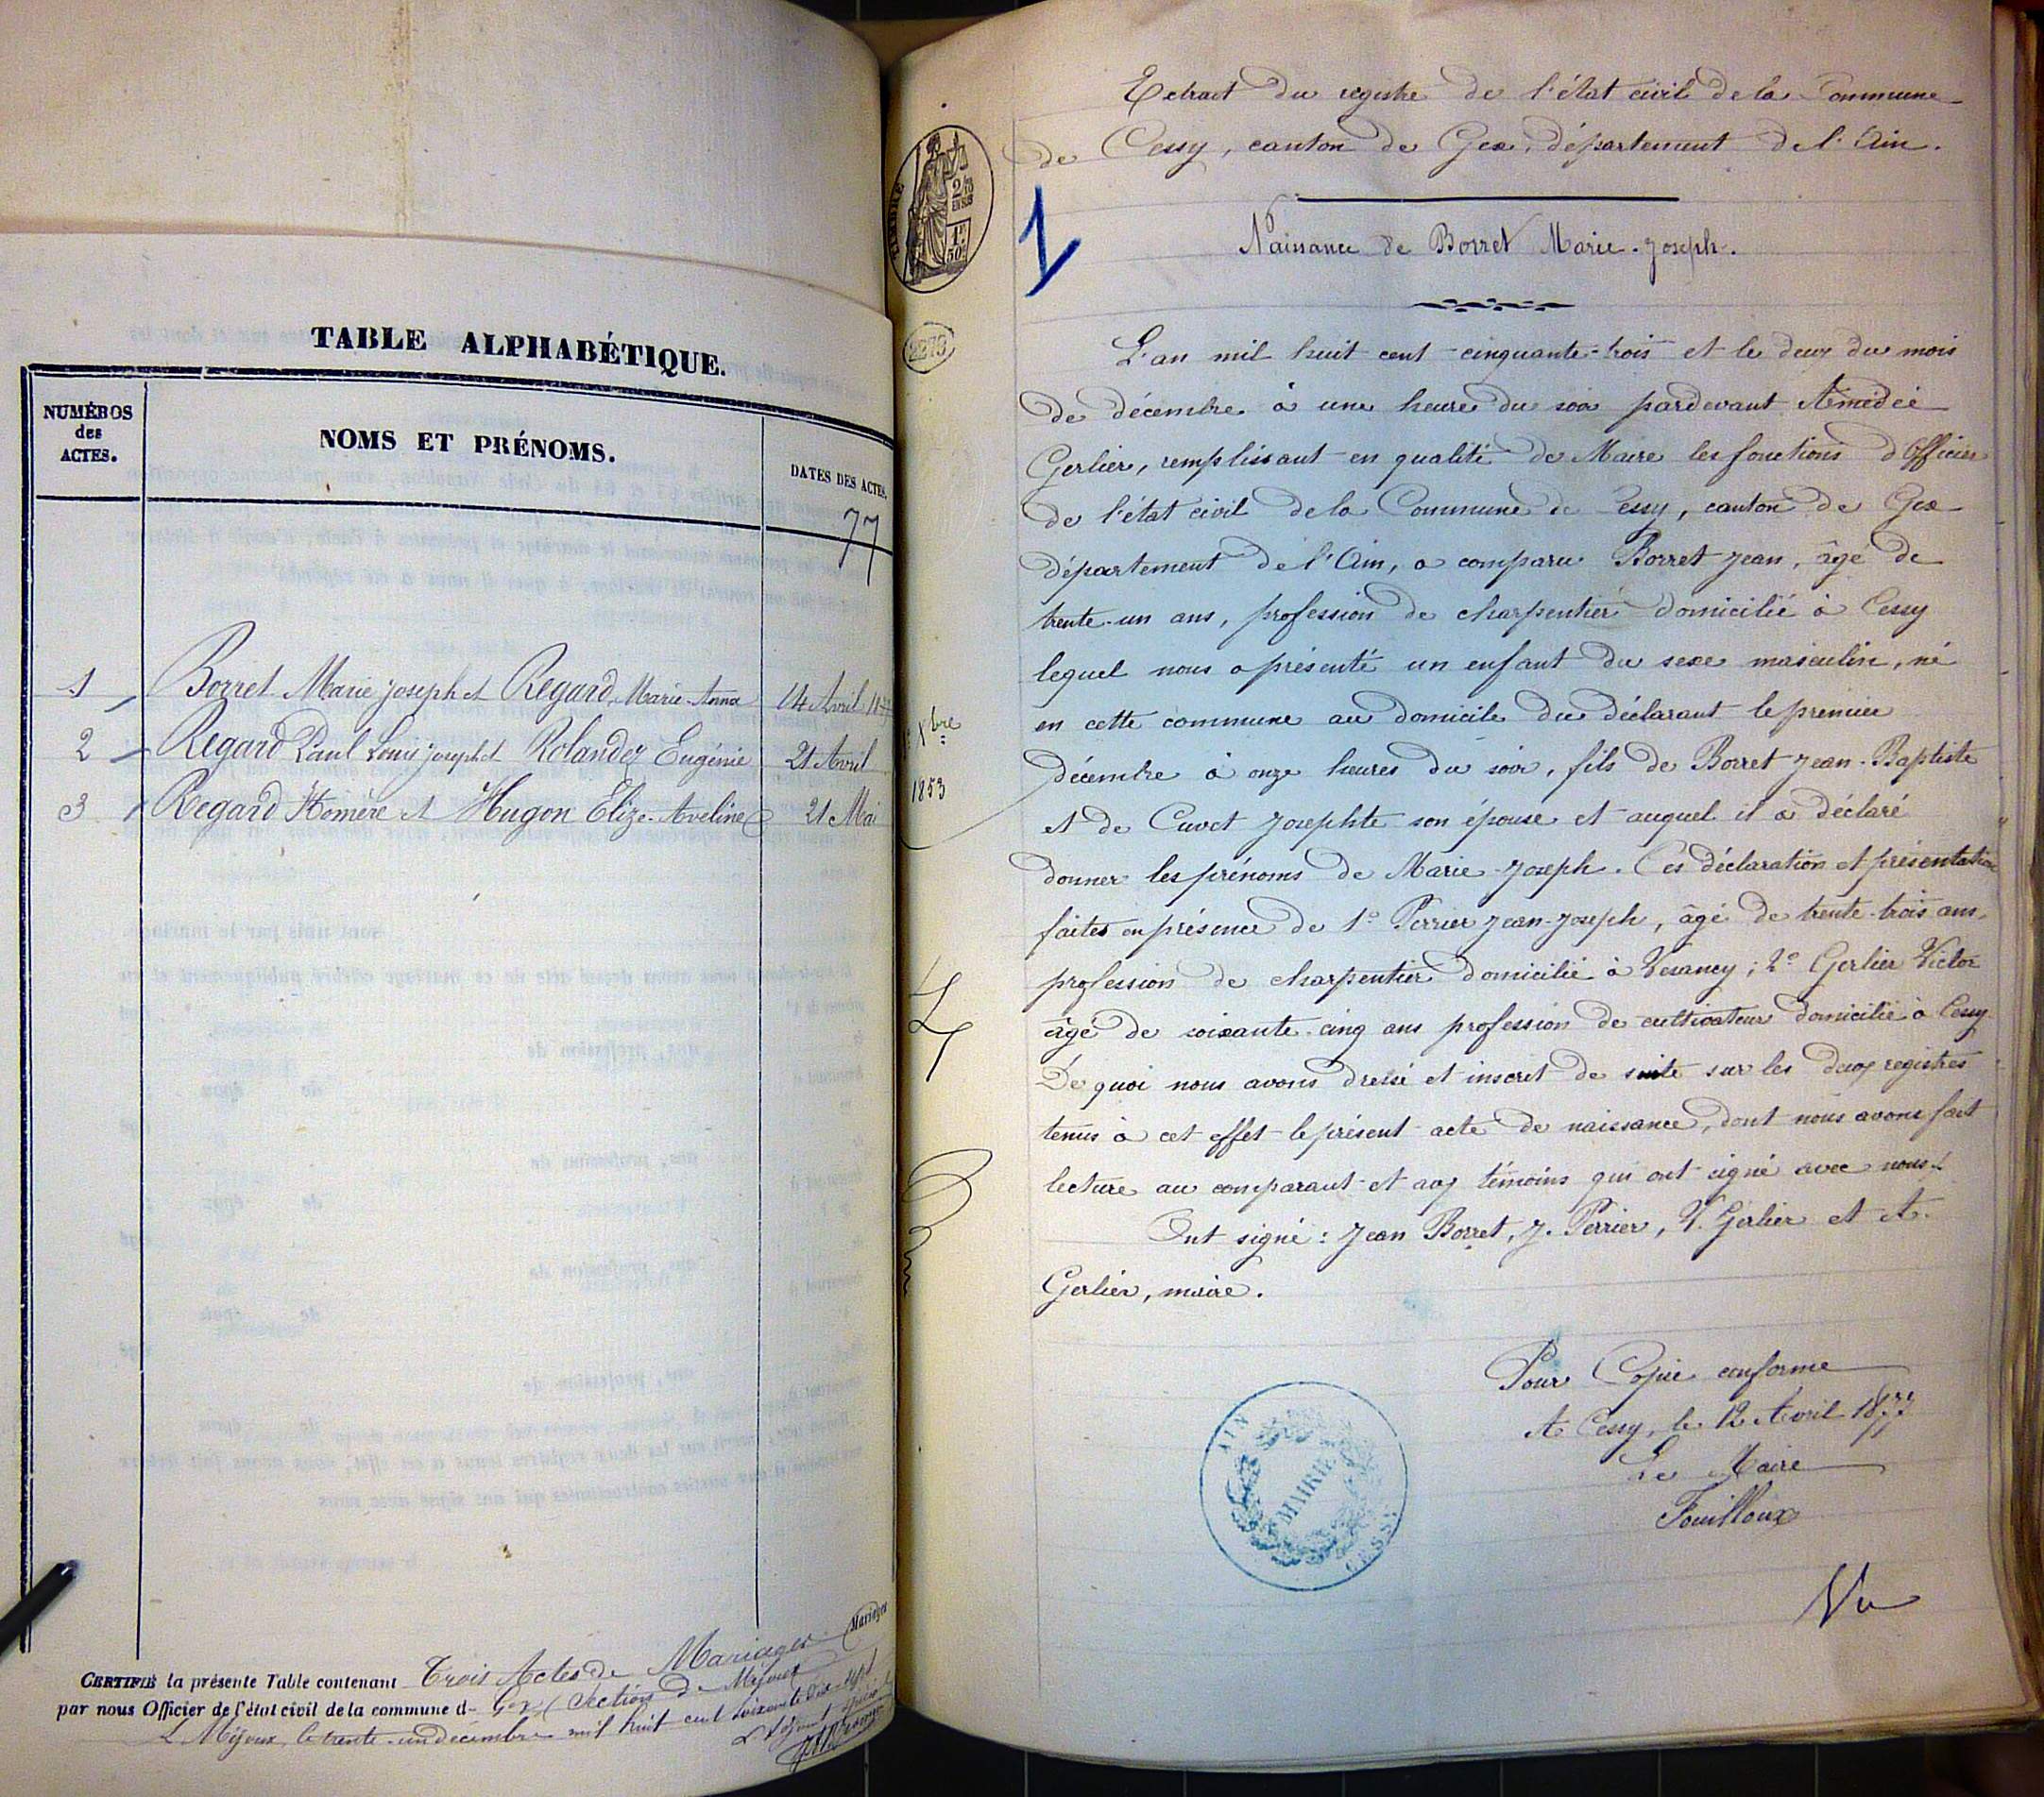 TABLE ALPHABÉTIQUE.
NUMÉROS
des
ACTES.
NOMS ET PRÉNOMS.
DATES DES ACTES.
77
1 Borret Marie Joseph et Regard, Marie-Anna 14 Avril 1877
2 Regard Paul Louis Joseph et Rolandez Eugénie 21 Avril
3 Regard Homère et Hugon Elize-Aveline 21 Mai
CERTIFIÉ la présente Table contenant Trois Actes de Mariages Mariages
par nous Officier de l'état civil de la commune d- Gex (Section de Mijoux
L Mijoux, le trente-un décembre mil huit cent soixante dix-sept
Extrait du registre de l'état civil de la Commune
de Cessy, canton de Gex, département de l'Ain.
TIMBRE
2/10
EN SUS
1F
50c
1
Naissance de Borret Marie-Joseph.
2273
L'an mil huit cent cinquante-trois et le deux du mois
de décembre à une heure du soir pardevant Amédée
Gerlier, remplissant en qualité de Maire les fonctions d'Officier
de l'état civil de la Commune de Cessy, canton de Gex
département de l'Ain, a comparu Borret Jean, âgé de
trente-un ans, profession de charpentier domicilié à Cessy
lequel nous a présenté un enfant du sexe masculin, né
en cette commune au domicile du déclarant le premier
Xbre
1853
décembre à onze heures du soir, fils de Borret Jean-Baptiste
et de Cuvet Josephte son épouse et auquel il a déclaré
donner les prénoms de Marie-Joseph. Ces déclaration et présentation
faites en présence de 1° Perrier Jean-Joseph, âgé de trente-trois ans,
profession de charpentier domicilié à Vesancy; 2° Gerlier Victor
âgé de soixante-cinq ans profession de cultivateur domicilié à Cessy
De quoi nous avons dressé et inscrit de suite sur les deux registres
tenus à cet effet le présent acte de naissance, dont nous avons fait
lecture au comparant et aux témoins qui ont signé avec nous.
Ont signé: Jean Borret, J. Perrier, V. Gerlier et A.
Gerlier, maire.
Pour Copie conforme
A Cessy, le 12 Avril 1877
Le Maire
Fouilloux
AIN
MAIRIE
CESSY
Vu